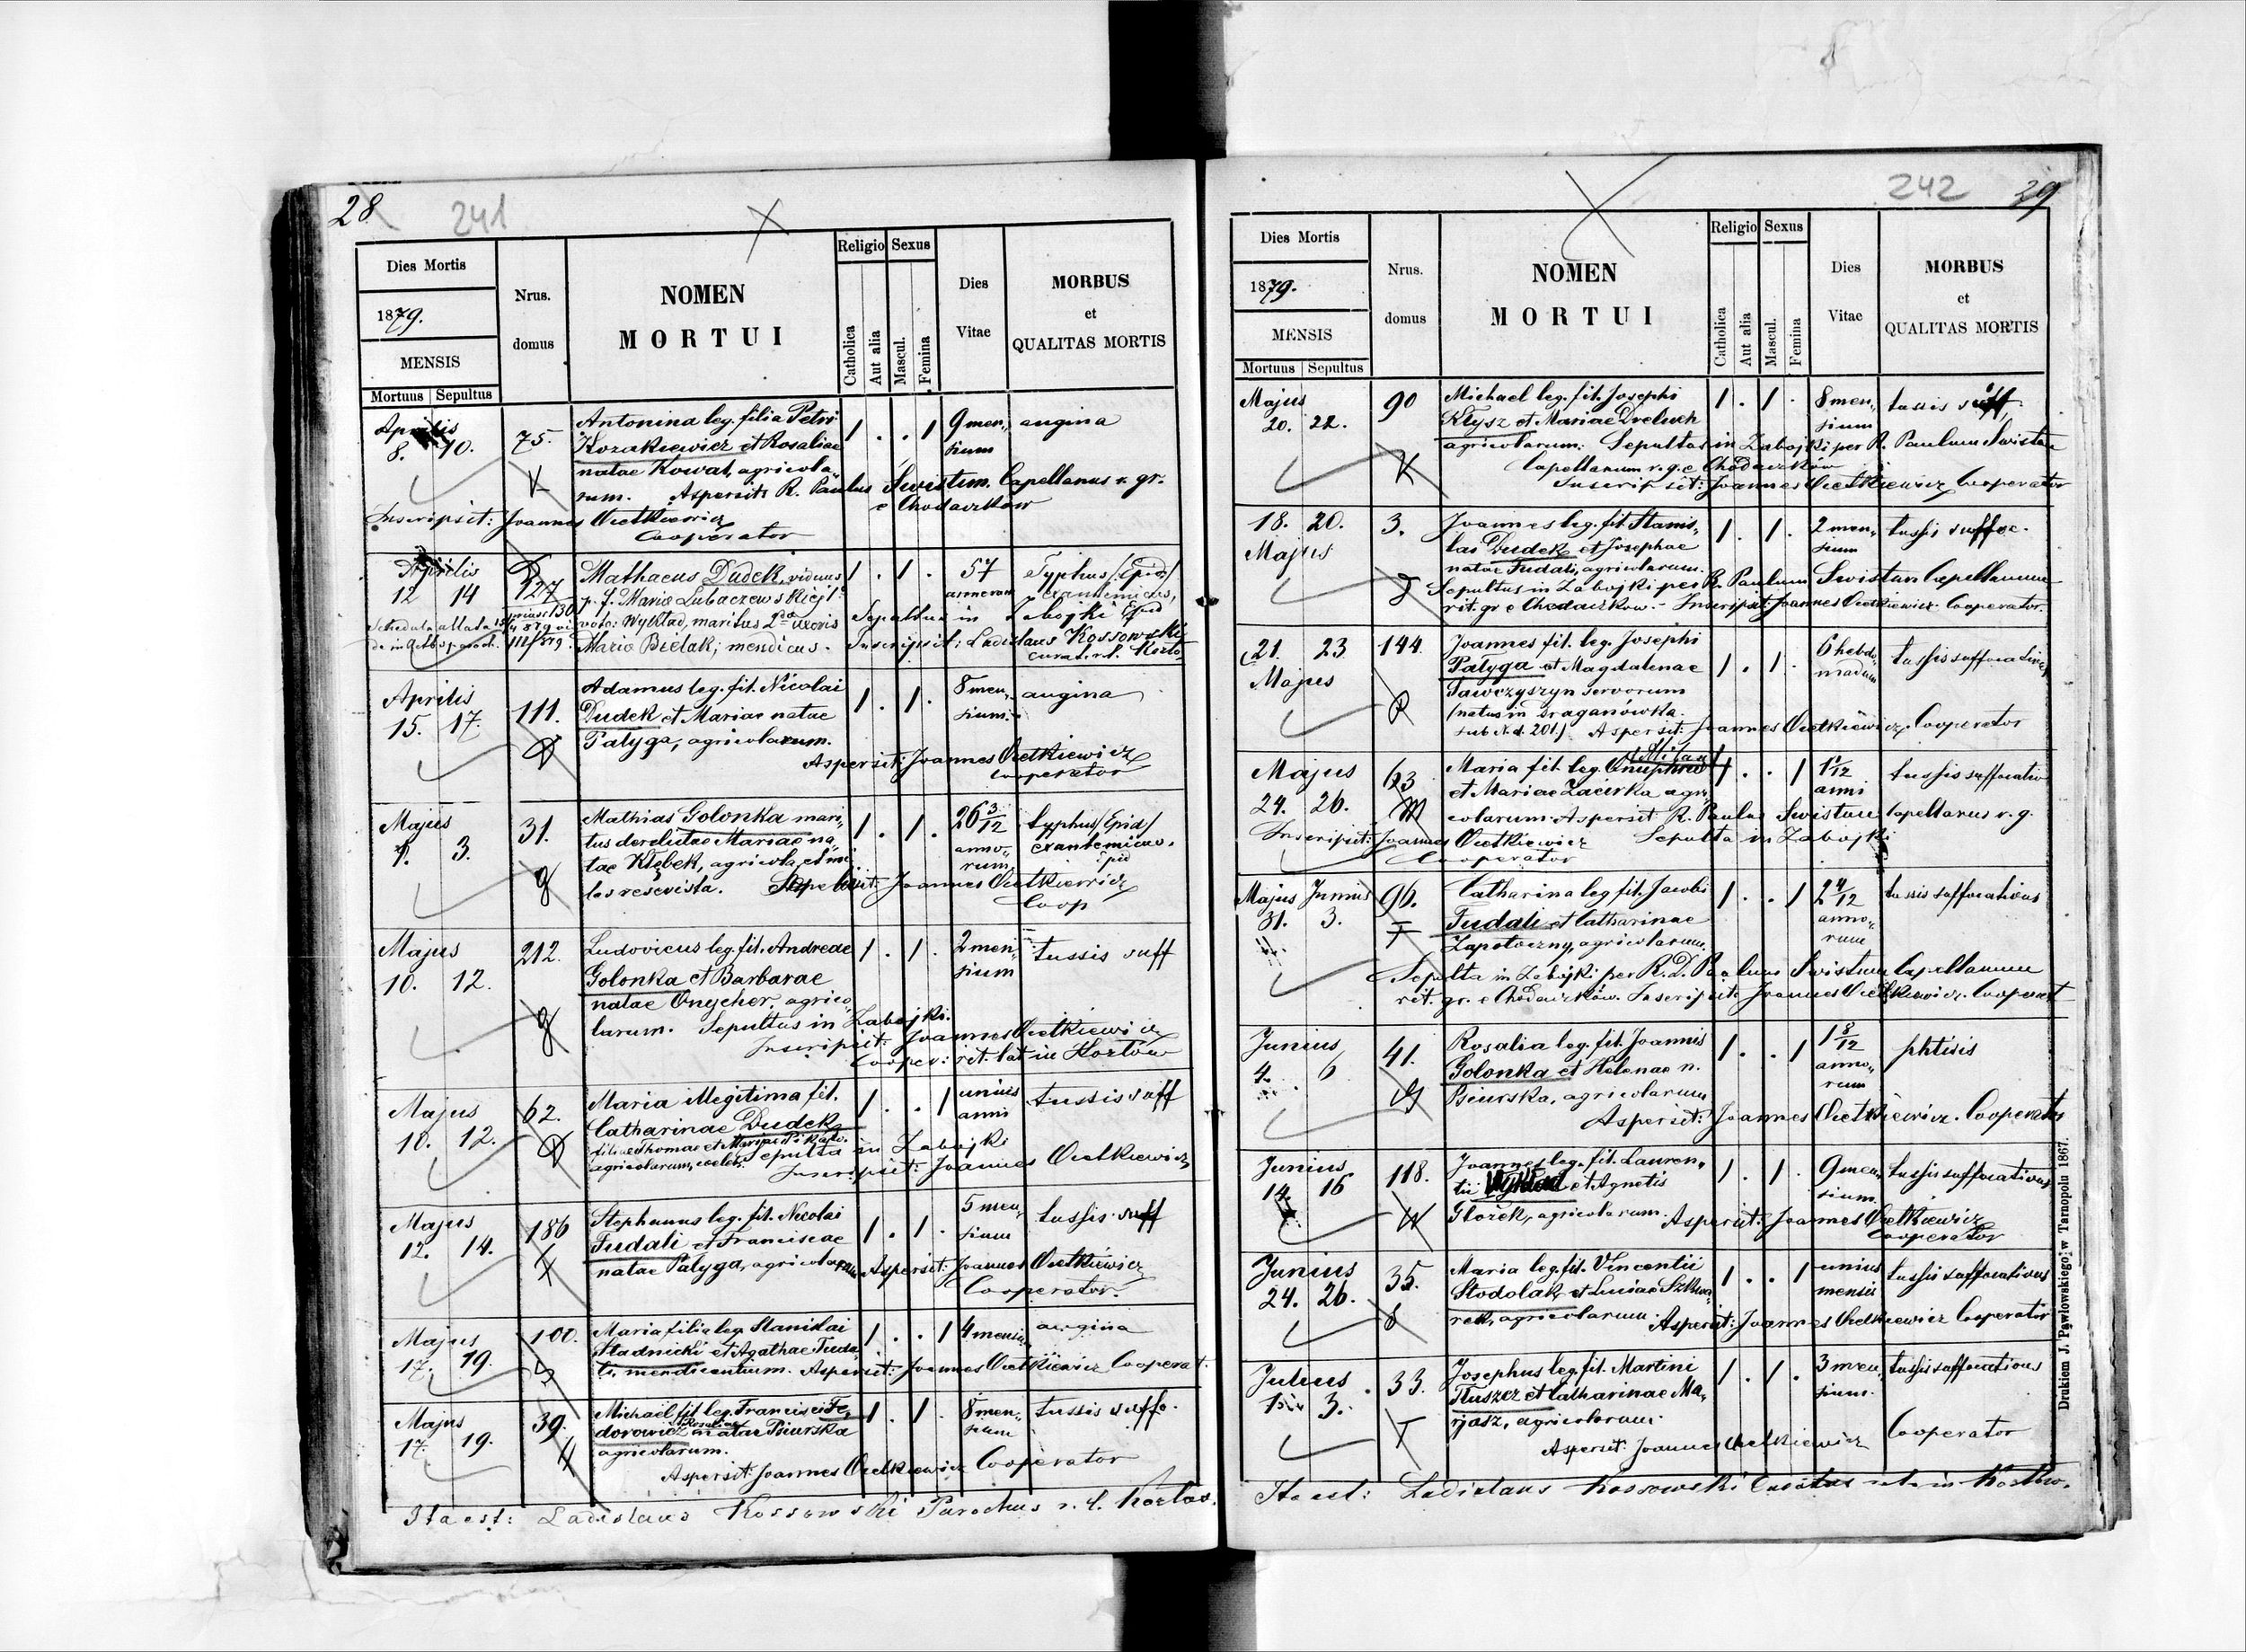 28
241
Dies Mortis
1879.
MENSIS
Mortuus Sepultus
Nrus.
domus
NOMEN
MORTUI
Religio
Catholica
Aut alia
Sexus
Mascul.
Femina
Dies
Vitae
MORBUS
et
QUALITAS MORTIS
Aprilis
8. 10.
75.
Antonina leg. filia Petri
Kozakiewicz et Rosaliae
natae Kowal, agricola„
rum. Aspersit: R. Paulus Swistun. Capellanus r. gr.
e Chodaczków
1 . . 1
9 men„
sium
angina
Inscripsit: Joannes Ocetkiewicz
Cooperator
Aprilis
12 14
127
Mathaeus Dudek, viduus
p. f. Maria Lubaczewskiej 1º
voto: Wykład, maritus 2do uxoris
Maria Bielak; mendicus.
1 . 1 .
57
annorum
Typhus /Epid/
exantemicus,
Sepultus in Zabojki
Inscripsit: Ladislaus Kossowski
Aprilis
15. 17.
111.
D
Adamus leg. fil. Nicolai
Dudek et Mariae natae
Patyga, agricolarum.
1 . 1 .
8 men„
sium.
angina
Aspersit: Joannes Ocetkiewicz
Cooperator
Majus
1. 3.
31.
g
Mathias Golonka mari„
tus derelictae Mariae na„
tae Kłębek, agricola, et mi
les resevista.
1 . 1 .
26 3/12
anno„
rum
typhus /Epid/
exantemicus.
Joannes Ocetkiewicz
Coop
Majus
10. 12.
212.
g
Ludovicus leg. fil. Andreae
Golonka et Barbarae
natae Onycher, agrico„
larum. Sepultus in Zabojki.
1 . 1 .
2 men„
sium
tussis suff
Inscripsit: Joannes Ocetkiewicz
Cooper: rit. lat in Kozłów
Majus
10. 12.
62.
D
Maria illegitima fil.
Catharinae Dudek
filiae Thomae et Mariae
agricolarum, Sepulta in Zabojki
1 . . 1
unius
anni
tussis suff
Inscripsit: Joannes Ocetkiewicz
Majus
12. 14.
186
F
Stephanus leg. fil. Nicolai
Fudali et Franciscae
natae Patyga, agricolarum
1 . 1 .
5 men„
sium
tussis suff
Aspersit: Joannes Ocetkiewicz
Cooperator.
Majus
17. 19.
100.
S
Maria filia leg. Stanislai
Stadnicki et Agathae Fuda„
li, mendicantium. Aspersit: Joannes Ocetkiewicz Cooperat.
1 . . 1
4 mensium
angina
Majus
17. 19.
39.
Michaël fil. leg. Francisci Fe„
dorowicz et Rosaliae natae Psiurska
agricolarum.
1 . 1 .
8 men„
sium
tussis suffo.
Aspersit: Joannes Ocetkiewicz Cooperator
Ita est: Ladislaus Kossowski Parochus r. l. Kozłów.
242
29
Dies Mortis
1879.
MENSIS
Mortuus Sepultus
Nrus.
domus
NOMEN
MORTUI
Religio
Catholica
Aut alia
Sexus
Mascul.
Femina
Dies
Vitae
MORBUS
et
QUALITAS MORTIS
Majus
20. 22.
90
K
Michael leg. fil. Josephi
Kłysz et Mariae Dreluch
agricolarum. Sepultus in Zabojki per R. Paulum Swistun
Capellanum r. g. e Chodaczków
Inscripsit: Joannes Ocetkiewicz Cooperator
1 . 1 .
8 men„
sium
tussis suff.
18. 20.
Majus
3.
Joannes leg. fil Stanis„
lai Dudek et Josephae
natae Fudali, agricolarum.
Sepultus in Zabojki per R. Paulum Swistun Capellanum
rit. gr. e Chodaczków. – Inscripsit Joannes Ocetkiewicz Cooperator.
1 . 1 .
2 men„
sium
tussis suffoc.
21. 23
Majus
144
P
Joannes fil. leg. Josephi
Patyga et Magdalenae
Sawczyszyn servorum
/natus in Draganówka
sub N. d. 201/. Aspersit: Joannes Ocetkiewicz. Cooperator
1 . 1 .
6 hebdo„
madum
tussis suffocativus
Majus
24. 26.
63
M
Maria fil. leg. Onuphrii
et Mariae Zacirka agri„
colarum. Aspersit R. Paulus Swistun Capellanus r. g.
1 . . 1
1 1/12
anni
tussis suffocativ
Inscripsit: Joannes Ocetkiewicz
Cooperator
Sepulta in Zabojki
Majus Junius
31. 3.
96.
F
Catharina leg fil. Jacobi
Fudali et Catharinae
Zapotoczny, agricolarum.
Sepulta in Zabojki per R. D. Paulum Swistun Capellanum
rit. gr. e Chodaczków. Inscripsit Joannes Ocetkiewicz. Cooperat
1 . . 1
2 4/12
anno„
rum
tussis suffocativus
Junius
4. 6
41.
G
Rosalia leg. fil. Joannis
Golonka et Helenae n.
Psiurska, agricolarum
1 . . 1
1 8/12
anno„
rum
phtisis
Aspersit: Joannes Ocetkiewicz. Cooperator
Junius
14. 16
118.
W
Joannes leg. fil. Lauren„
tii Wykład et Agnetis
Głożek, agricolarum.
1 . 1 .
9 men„
sium.
tussis suffocativus
Aspersit: Joannes Ocetkiewicz
Cooperator
Junius
24. 26.
35.
S
Maria leg. fil. Vincentii
Stodolak et Luciae
rek, agricolarum.
1 . . 1
unius
mensis
tussis suffocativus
Aspersit: Joannes Ocetkiewicz Cooperator
Julius
1. 3.
33.
T
Josephus leg. fil. Martini
Tłuszcz et Catharinae Ma„
rjasz, agricolarum.
1 . 1 .
3 men„
sium.
tussis suffocativus
Aspersit: Joannes Ocetkiewicz Cooperator
Ita est: Ladislaus Kossowski
Drukiem J. Pawłowskiego w Tarnopolu 1867.